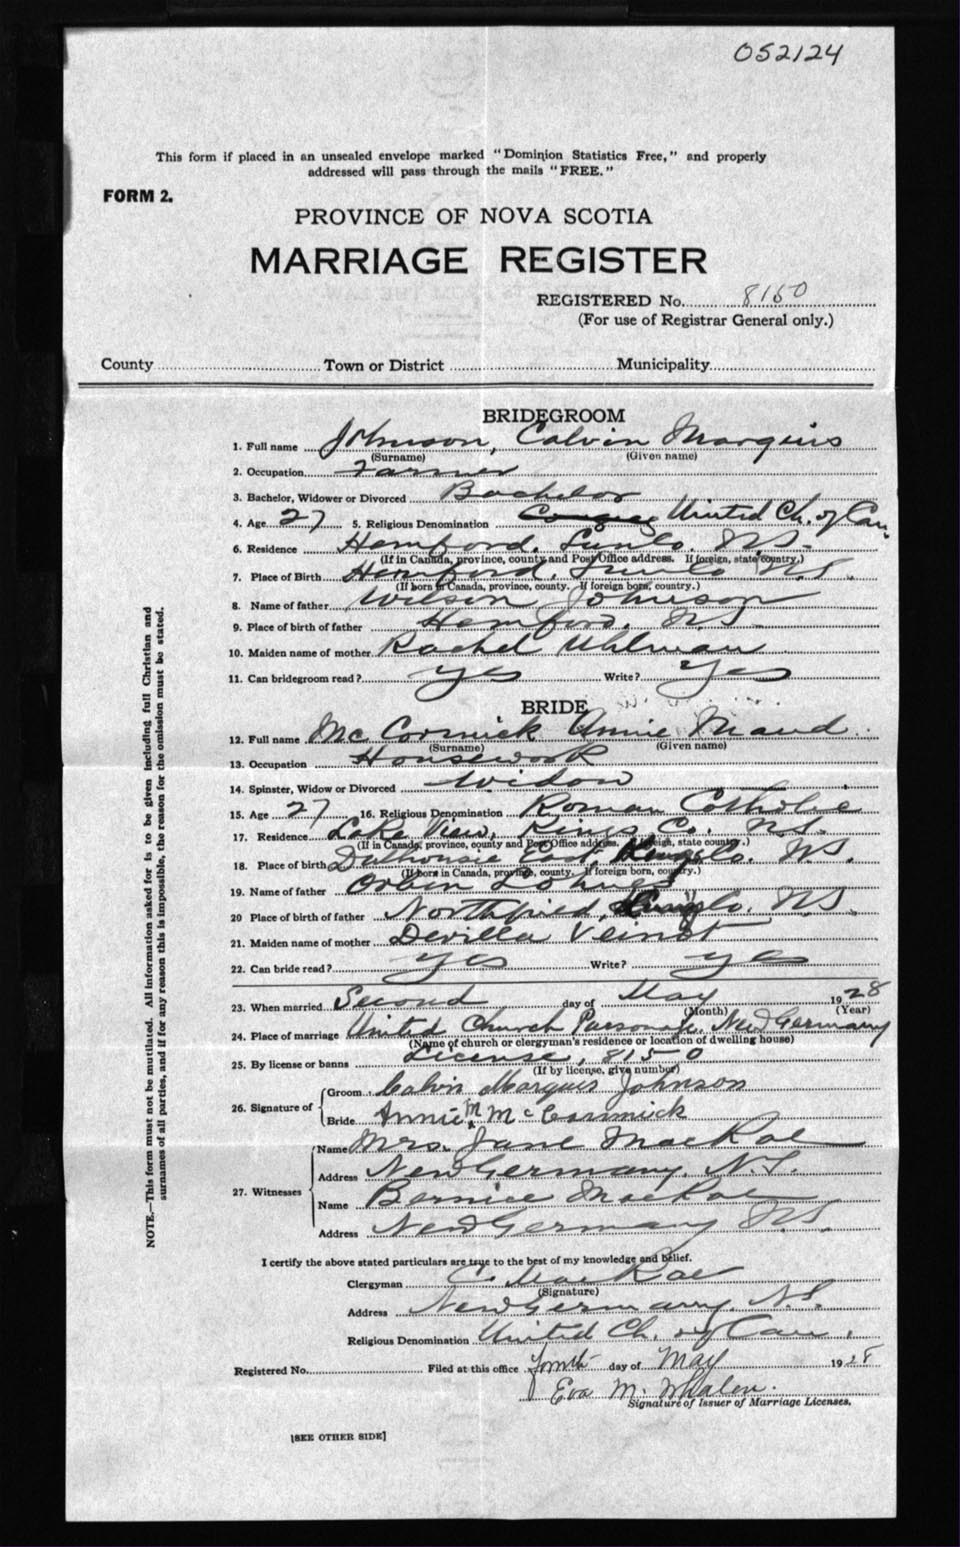 052124
This form if placed in an unsealed envelope marked "Dominion Statistics Free," and properly
addressed will pass through the mails "FREE."
FORM 2.
PROVINCE OF NOVA SCOTIA
MARRIAGE REGISTER
REGISTERED No. 8150
(For use of Registrar General only.)
County Town or District Municipality
BRIDEGROOM
1. Full name Johnson, Calvin Marquis
(Surname) (Given name)
2. Occupation Farmer
3. Bachelor, Widower or Divorced Bachelor
4. Age 27 5. Religious Denomination United Ch. of Can.
6. Residence Hemford, Lun Co. N.S.
(If in Canada, province, county and Post Office address. If foreign, state country.)
7. Place of Birth Hemford, Lun Co N.S.
(If born in Canada, province, county. If foreign born, country.)
8. Name of father Wilson Johnson
9. Place of birth of father Hemford, N.S.
10. Maiden name of mother Rachel Uhlman
11. Can bridegroom read? Yes Write? Yes
BRIDE
12. Full name McCormick Annie Maud
(Surname) (Given name)
13. Occupation Housework
14. Spinster, Widow or Divorced Widow
15. Age 27 16. Religious Denomination Roman Catholic
17. Residence Lake View, Kings Co. N.S.
(If in Canada, province, county and Post Office address. If foreign, state country.)
18. Place of birth Dalhousie East, Kings Co. N.S.
(If born in Canada, province, county. If foreign born, country.)
19. Name of father Orben Lohnes
20 Place of birth of father Northfield, Co. N.S.
21. Maiden name of mother Devilla Veinot
22. Can bride read? Yes Write? Yes
23. When married Second day of May 1928
(Month) (Year)
24. Place of marriage United Church Parsonage, New Germany
(Name of church or clergyman's residence or location of dwelling house)
25. By license or banns License, 8150
(If by license, give number)
26. Signature of Groom Calvin Marquis Johnson
Bride Annie M. McCormick
27. Witnesses Name Mrs. Jane MacRae
Address New Germany, N.S.
Name Bernice MacRae
Address New Germany N.S.
I certify the above stated particulars are true to the best of my knowledge and belief.
Clergyman C. MacRae
(Signature)
Address New Germany, N.S.
Religious Denomination United Ch. of Can.
Registered No. Filed at this office Fourth day of May 1928
Eva M. Whalen.
Signature of Issuer of Marriage Licenses.
[SEE OTHER SIDE]
NOTE.—This form must not be mutilated. All information asked for is to be given including full Christian and
surnames of all parties, and if for any reason this is impossible, the reason for the omission must be stated.